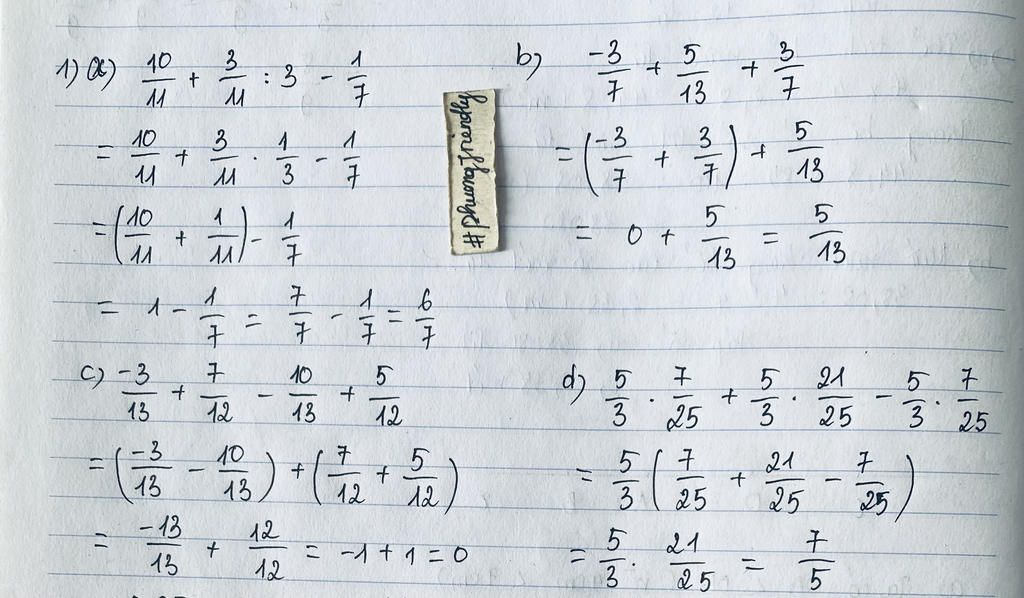 1) a) 10/11 + 3/11 : 3 - 1/7
= 10/11 + 3/11 . 1/3 - 1/7
= (10/11 + 1/11) - 1/7
= 1 - 1/7 = 7/7 - 1/7 = 6/7
b) -3/7 + 5/13 + 3/7
= (-3/7 + 3/7) + 5/13
= 0 + 5/13 = 5/13
c) -3/13 + 7/12 - 10/13 + 5/12
= (-3/13 - 10/13) + (7/12 + 5/12)
= -13/13 + 12/12 = -1 + 1 = 0
d) 5/3 . 7/25 + 5/3 . 21/25 - 5/3 . 7/25
= 5/3 (7/25 + 21/25 - 7/25)
= 5/3 . 21/25 = 7/5